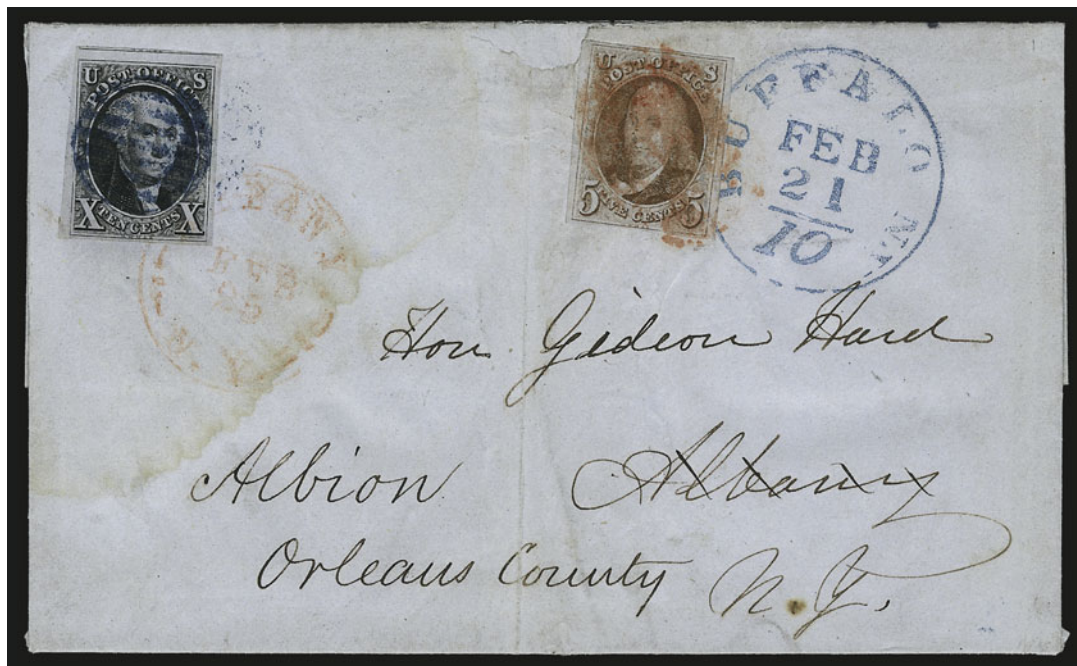 U S
POST OFFICE
X TEN CENTS X
U S
POST OFFICE
5 FIVE CENTS 5
BUFFALO N.Y.
FEB
21
10
FEB
Hon. Gideon Hard
Albion Albany
Orleans County N.Y.